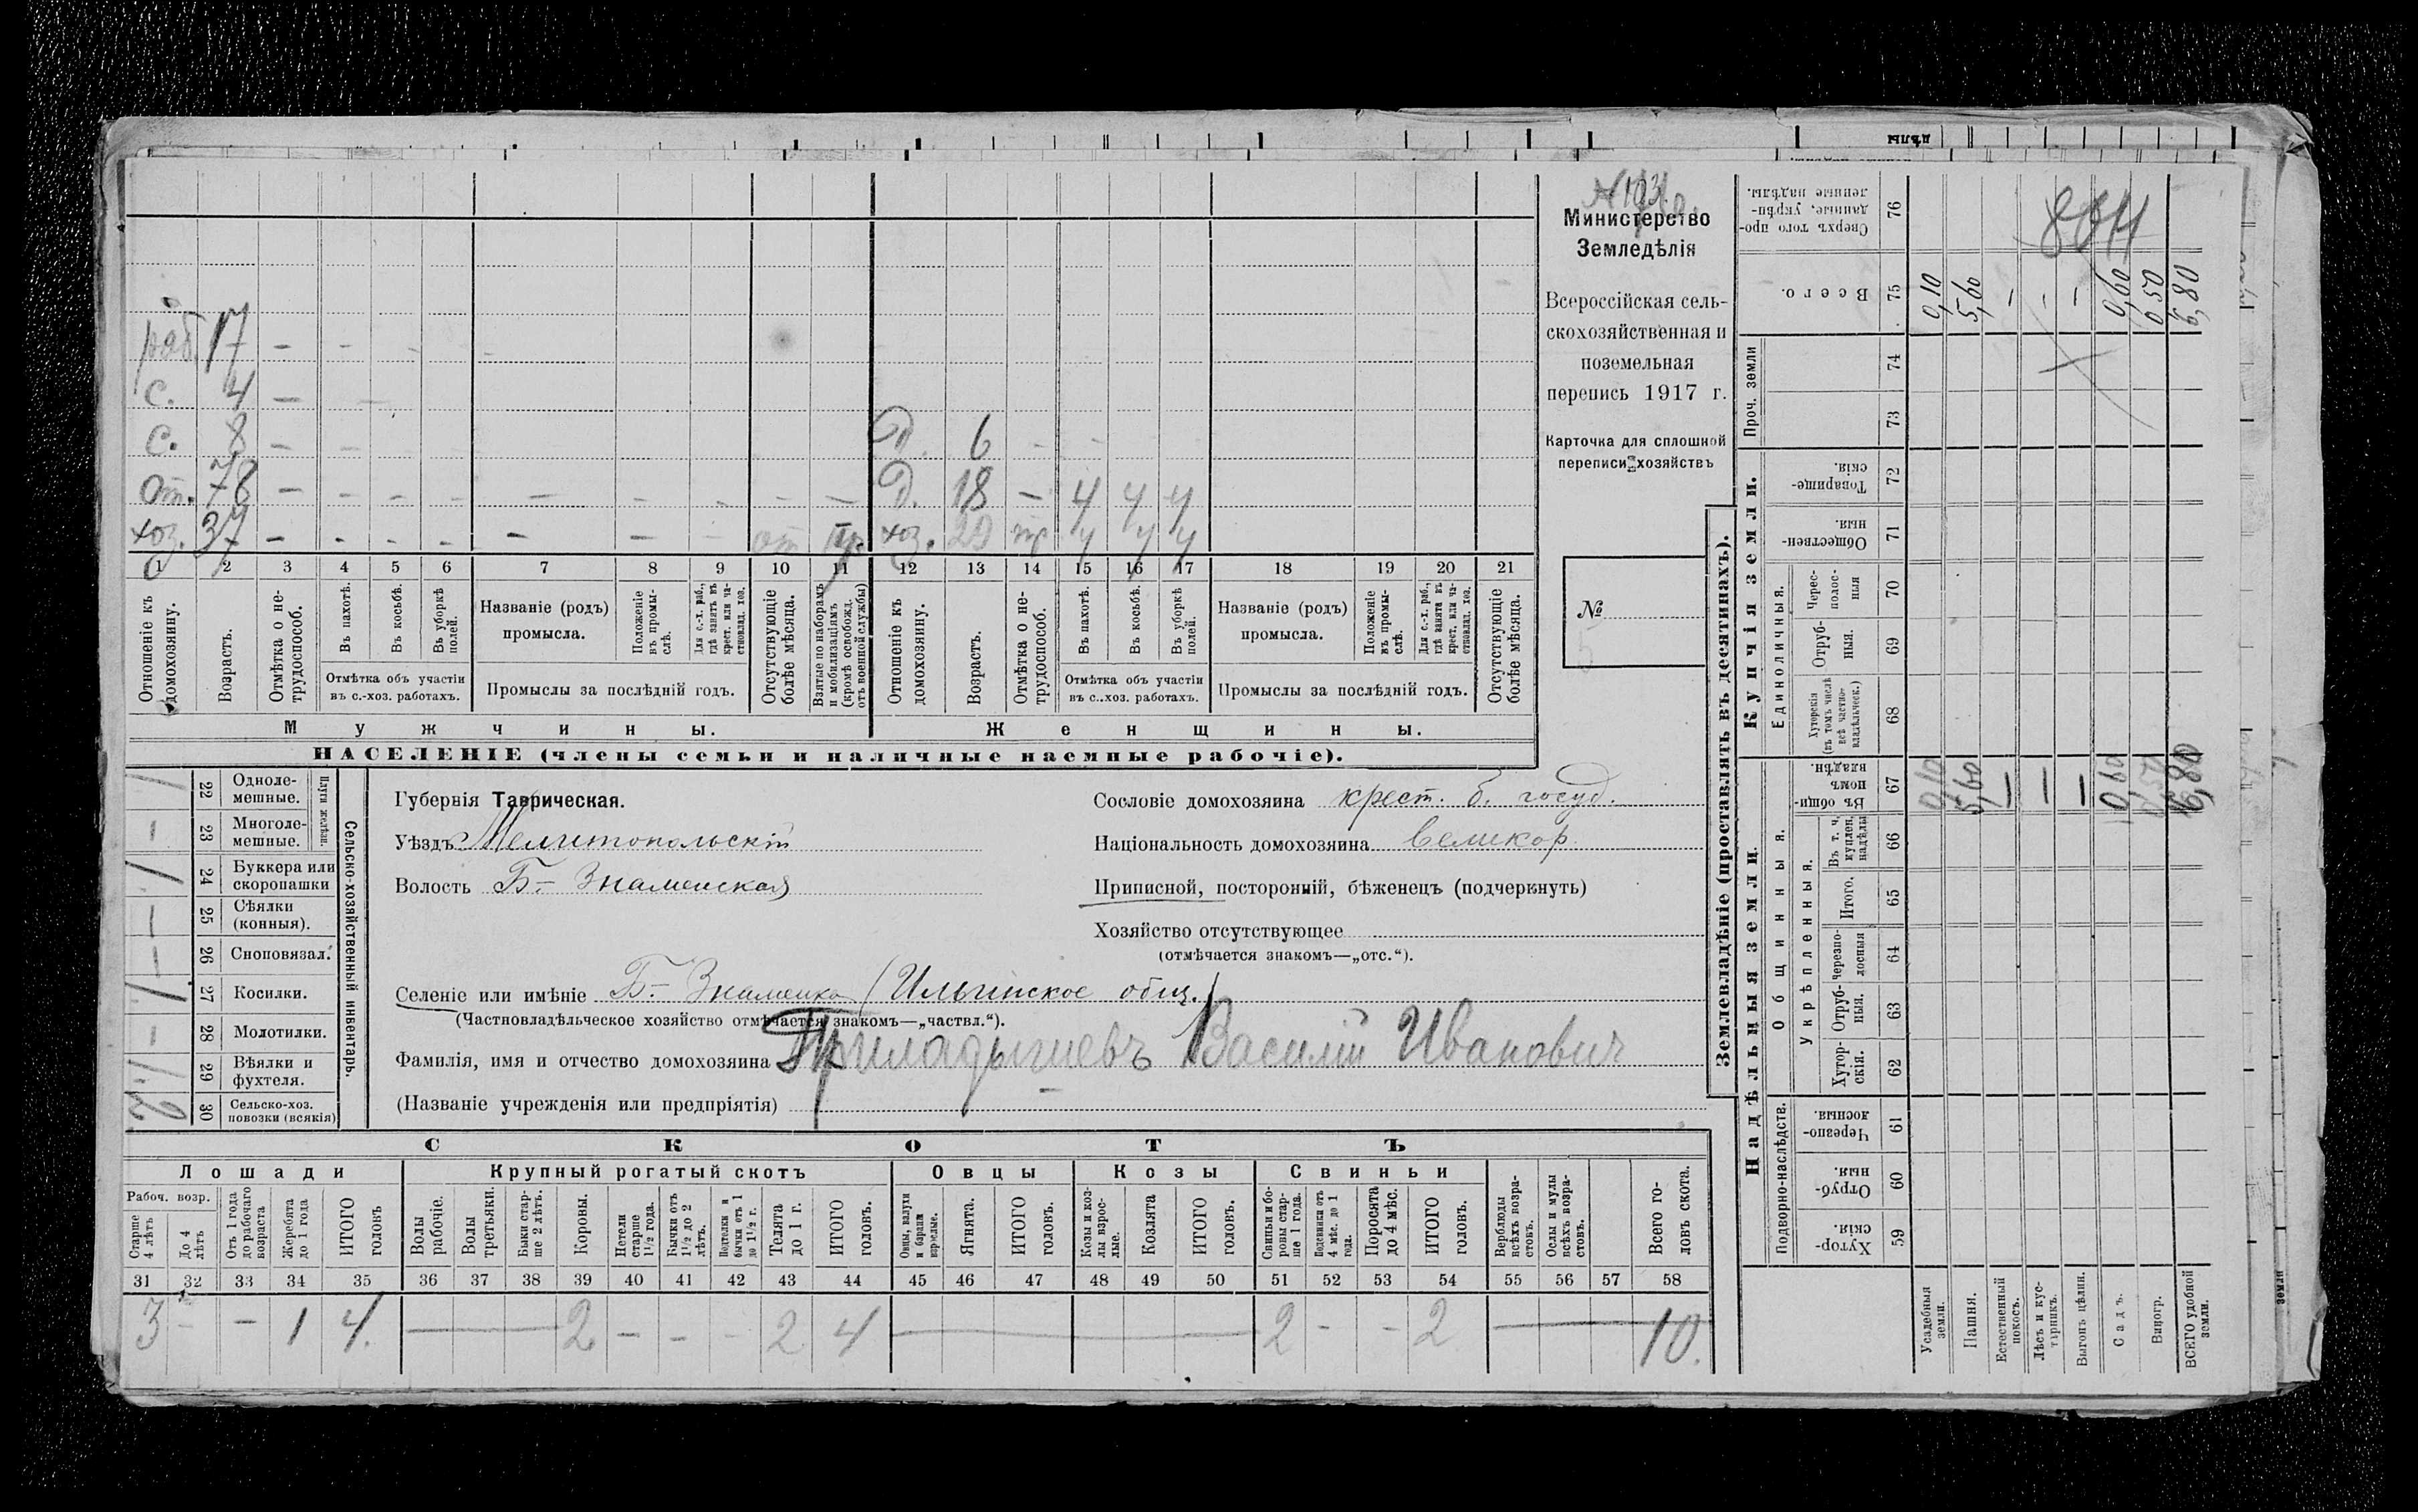 Министерство
Земледѣлія
Всероссійская сель-
скохозяйственная и
поземельная
перепись 1917 г.
Карточка для сплошной
переписи хозяйствъ
№
раб. 17 –
с. 4 –
с. 8 – Д. 6 – –
от. 78 – – – – – – – – – Д. 18 – 4 4 4
хоз. 37 – – – – – – – от хоз. 29 4 4 4
1 2 3 4 5 6 7 8 9 10 11 12 13 14 15 16 17 18 19 20 21
Отношеніе къ домохозяину.
Возрастъ.
Отмѣтка о не-трудоспособ.
Въ пахотѣ.
Въ косьбѣ.
Въ уборкѣ полей.
Отмѣтка объ участіи
въ с.-хоз. работахъ.
Названіе (родъ)
промысла.
Положеніе въ промы-слѣ.
Для с.-х. раб., гдѣ занятъ въ крест. или ча-стновлад. хоз.
Промыслы за послѣдній годъ.
Отсутствующіе болѣе мѣсяца.
Взятые по наборамъ и мобилизаціямъ (кромѣ освобожд. отъ военной службы)
Отношеніе къ домохозяину.
Возрастъ.
Отмѣтка о не-трудоспособ.
Въ пахотѣ.
Въ косьбѣ.
Въ уборкѣ полей.
Отмѣтка объ участіи
въ с..хоз. работахъ.
Названіе (родъ)
промысла.
Положеніе въ промы-слѣ.
Для с.-х. раб., гдѣ занята въ крест. или ча-стновлад. хоз.
Промыслы за послѣдній годъ.
Отсутствующіе болѣе мѣсяца.
Мужчины. Женщины.
НАСЕЛЕНІЕ (члены семьи и наличные наемные рабочіе).
Сельско-хозяйственный инвентарь.
Плуги желѣзн.
1 22 Одноле-мешные.
– 23 Многоле-мешные.
1 24 Буккера или скоропашки
– 25 Сѣялки (конныя).
– 26 Сноповязал.
1 27 Косилки.
– 28 Молотилки.
1 29 Вѣялки и фухтеля.
2 30 Сельско-хоз. повозки (всякія)
Губернія Таврическая.
Уѣздъ Мелитопольскій
Волость Б- Знаменская
Сословіе домохозяина крест. б. госуд.
Національность домохозяина великор.
Приписной, посторонній, бѣженецъ (подчеркнуть)
Хозяйство отсутствующее
(отмѣчается знакомъ—„отс.“).
Селеніе или имѣніе Б- Знаменка (Ильинское общ.)
(Частновладѣльческое хозяйство отмѣчается знакомъ—„частвл.“).
Фамилія, имя и отчество домохозяина Приладышевъ Василій Иванович
(Названіе учрежденія или предпріятія)
СКОТЪ
Лошади Крупный рогатый скотъ Овцы Козы Свиньи
Рабоч. возр.
Старше 4 лѣтъ
До 4 лѣтъ
Отъ 1 года до рабочаго возраста
Жеребята до 1 года
ИТОГО головъ
Волы рабочіе.
Волы третьяки.
Быки стар-ше 2 лѣтъ.
Коровы.
Нетели старше 1½ года.
Бычки отъ 1½ до 2 лѣтъ.
Подтелки и бычки отъ 1 до 1½ г.
Телята до 1 г.
ИТОГО головъ.
Овцы, валухи и бараны взрослые.
Ягнята.
ИТОГО головъ.
Козы и коз-лы взрос-лые.
Козлята
ИТОГО головъ.
Свиньи и бо-ровы стар-ше 1 года.
Подсвинки отъ 4 мѣс. до 1 года.
Поросята до 4 мѣс.
ИТОГО головъ.
Верблюды всѣхъ возра-стовъ.
Ослы и мулы всѣхъ возра-стовъ.
Всего го-ловъ скота.
31 32 33 34 35 36 37 38 39 40 41 42 43 44 45 46 47 48 49 50 51 52 53 54 55 56 57 58
3 – – 1 4. 2 – – – 2 4 2 – – 2 10.
Землевладѣніе (проставлять въ десятинахъ).
Надѣльныя земли.
Купчія земли.
Проч. земли
Подворно-наслѣдств.
Общинныя.
Укрѣпленныя.
Единоличныя.
Хутор-скія. 59
Отруб-ныя. 60
Черезпо-лосныя. 61
Хутор-скія. 62
Отруб-ныя. 63
Черезпо-лосныя 64
Итого. 65
Въ т. ч. куплен. надѣлы 66
Въ общин-номъ владѣн. 67
Хуторскія (въ томъ числѣ всѣ частно-владѣльческ.) 68
Отруб-ныя. 69
Черес-полос-ныя 70
Обществен-ныя. 71
Товарище-скія. 72
73
74
Всего. 75
Сверхъ того про-данные, укрѣп-ленные надѣлы. 76
Усадебныя земли. 0,10 0,10
Пашня. 5,60 5,60
Естественный покосъ. – –
Лѣсъ и кус-тарникъ. – –
Выгонъ цѣлин. – –
Садъ. 0,60 0,60
Виногр. 0,50 0,50
ВСЕГО удобной земли. 6,80 6,80